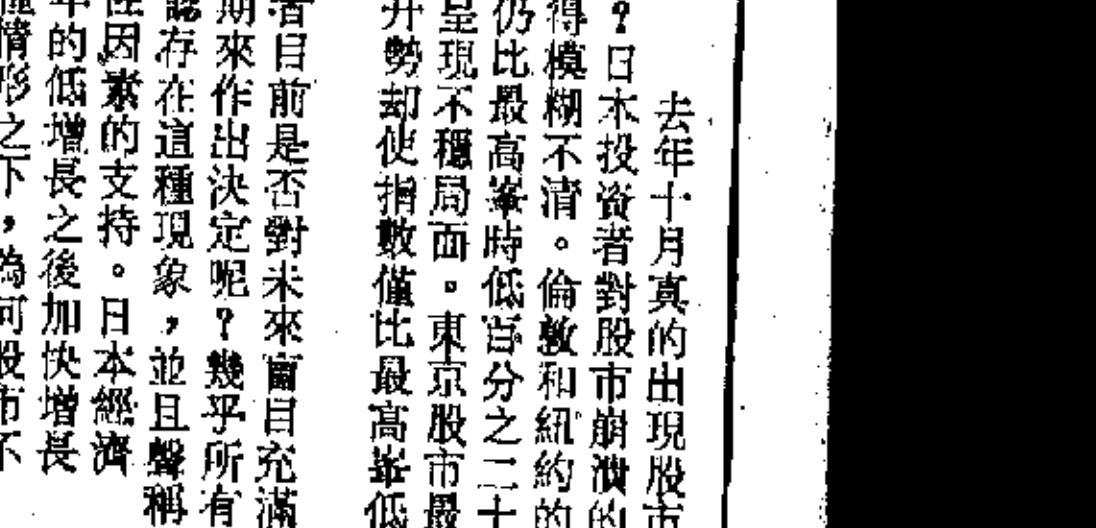 去年十月真的出現股市
?日本投資者對股市崩潰的
得模糊不清。倫敦和紐約的
仍比最高峯時低百分之二十
呈現不穩局面。東京股市最
升勢却使指數僅比最高峯低
者目前是否對未來盲目充滿
期來作出決定呢?幾乎所有
認存在這種現象,並且聲稱
性因素的支持。日本經濟
年的低增長之後加快增長
種情形之下,為何股市不